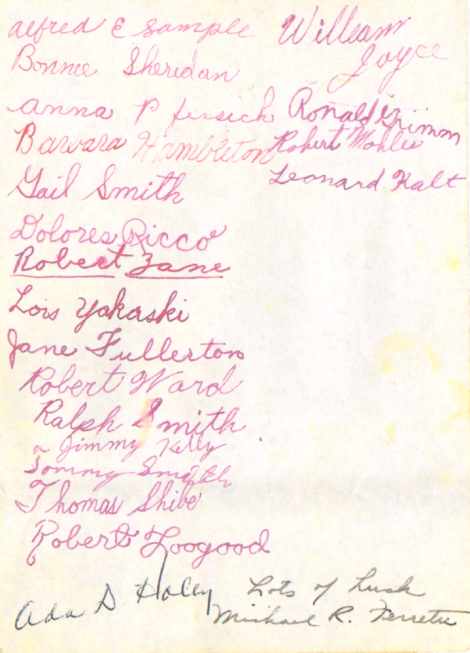 Alfred E Sample
Bonnie Sheridan
Anna P
Barvara Hambleton
Gail Smith
Dolores Ricco
Robert Zane
Lois Yakaski
Jane Fullerton
Robert Ward
Ralph Smith
Jimmy Kelly
Tommy Smith
Thomas Shibe
Robert Toogood
Ada D Haley
William
Joyce
Ronald Grimm
Robert Mohler
Leonard Kalt
Lots of Luck
Michael R.